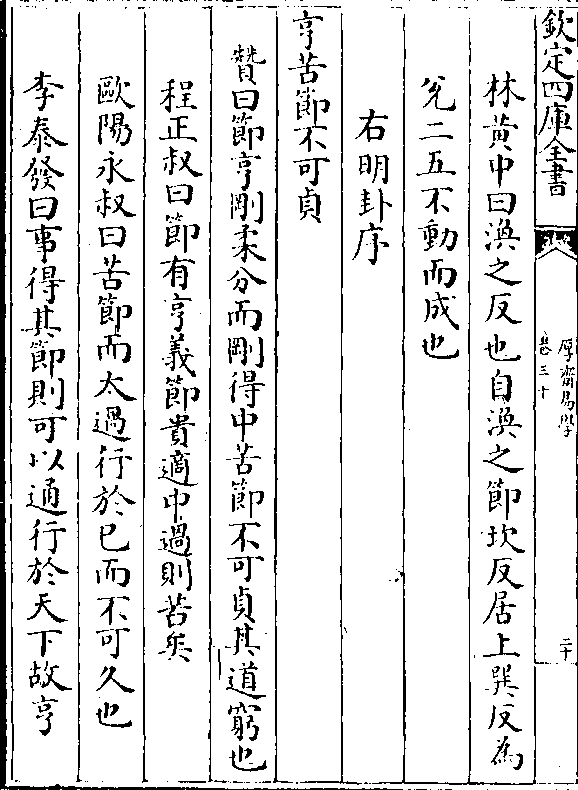 欽定四庫全書
厚齋易學
卷三十
二十
林黄中曰渙之反也自渙之節坎反居上巽反為
兌二五不動而成也
右明卦序
亨苦節不可貞
贊曰節亨剛柔分而剛得中苦節不可貞其道窮也
程正叔曰節有亨義節貴適中過則苦矣
歐陽永叔曰苦節而太過行於已而不可久也
李泰發曰事得其節則可以通行於天下故亨